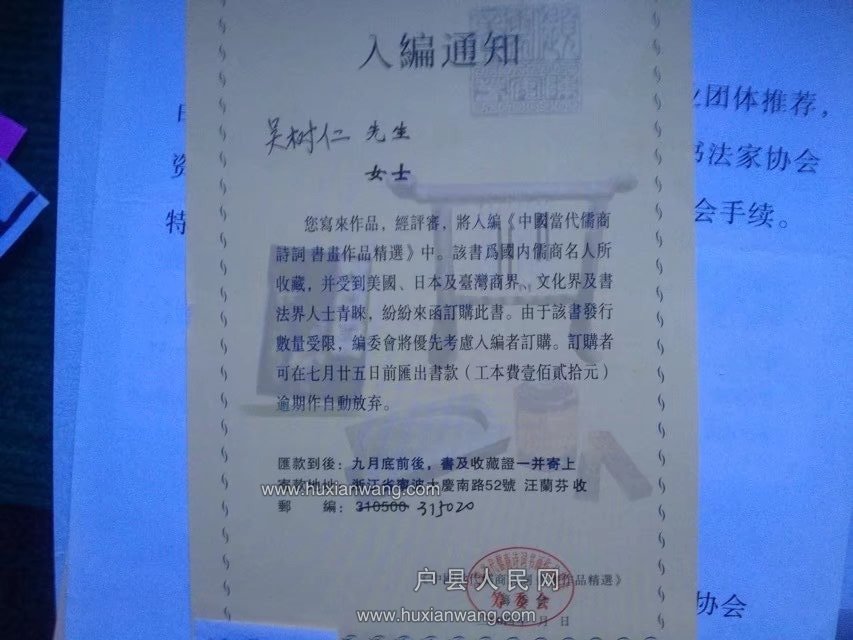 入編通知
业团体推荐，
吴树仁 先生
书法家协会
女士
特
会手续。
您寫來作品，經評審，將入編《中國當代儒商
詩詞書畫作品精選》中。該書爲國内儒商名人所
收藏，并受到美國、日本及臺灣商界、文化界及書
法界人士青睞，紛紛來函訂購此書。由于該書發行
數量受限，编委會將優先考慮入編者訂購。訂購者
可在七月廿五日前匯出書款（工本費壹佰贰拾元）
逾期作自動放弃。
匯款到後：九月底前後，書及收藏證一并寄上
寄款地址：浙江省寧波大慶南路52號 汪蘭芬 收
www.huxianwang.com
郵 編：310500 315020
作品精選》
户县人民网
委會
月 日
协会
www.huxianwang.com